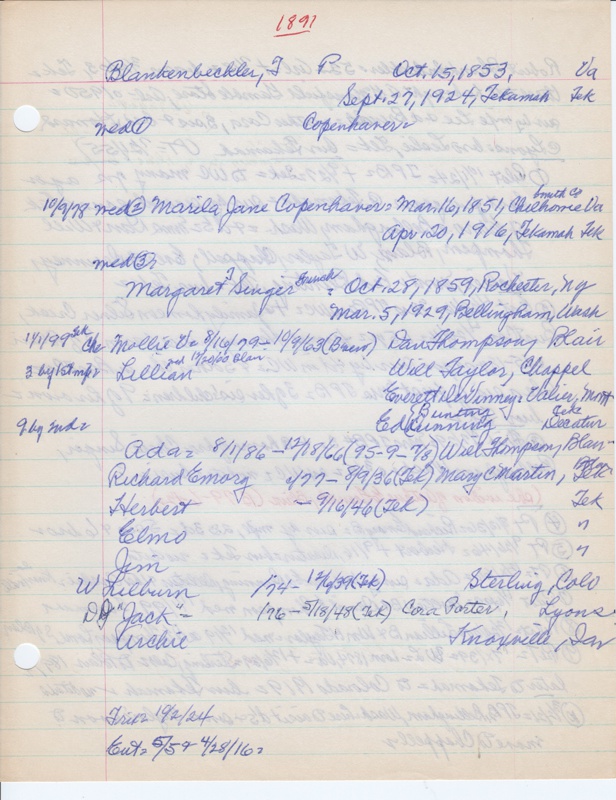 1897
Blankenbeckler, J P Oct. 15, 1853, Va
Sept. 27, 1924, Tekamah Tek
med① Copenhaver=
10/9/78 med② Marila Jane Copenhaver = Mar. 16, 1851, Chilhowie Va
Smith Co
Apr. 20, 1916, Tekamah Tek
med③
Margaret J Singer = Oct. 28, 1859, Rochester, NY
Mar. 5, 1929, Bellingham, Wash
1/1/99 Tek Che Mollie V= 8/16/79 - 10/9/63 Dan Thompson, Blair
3 by 1st mg= Lillian Will Taylor, Chappel
Everett DeVinney= Valier, Mont
9 by 2nd= Ed Bunting Tek Decatur
Ada= 8/1/86 - 12/18/66 (95-9-7/8) Will Thompson, Blair
Richard Emorg 1/77 - 8/9/36 (Tek) Mary C Martin, Tek
Herbert - 9/16/46 (Tek) Tek
Elmo "
Jim "
W Lilburn /74 - 12/6/39 (Tek) Sterling, Colo
DD "Jack" = /76 - 5/18/48 (Tek) Cora Porter, Lyons
Archie Knoxville, Iav
Tric= 192/24
Ent= 5/5 & 4/28/16=